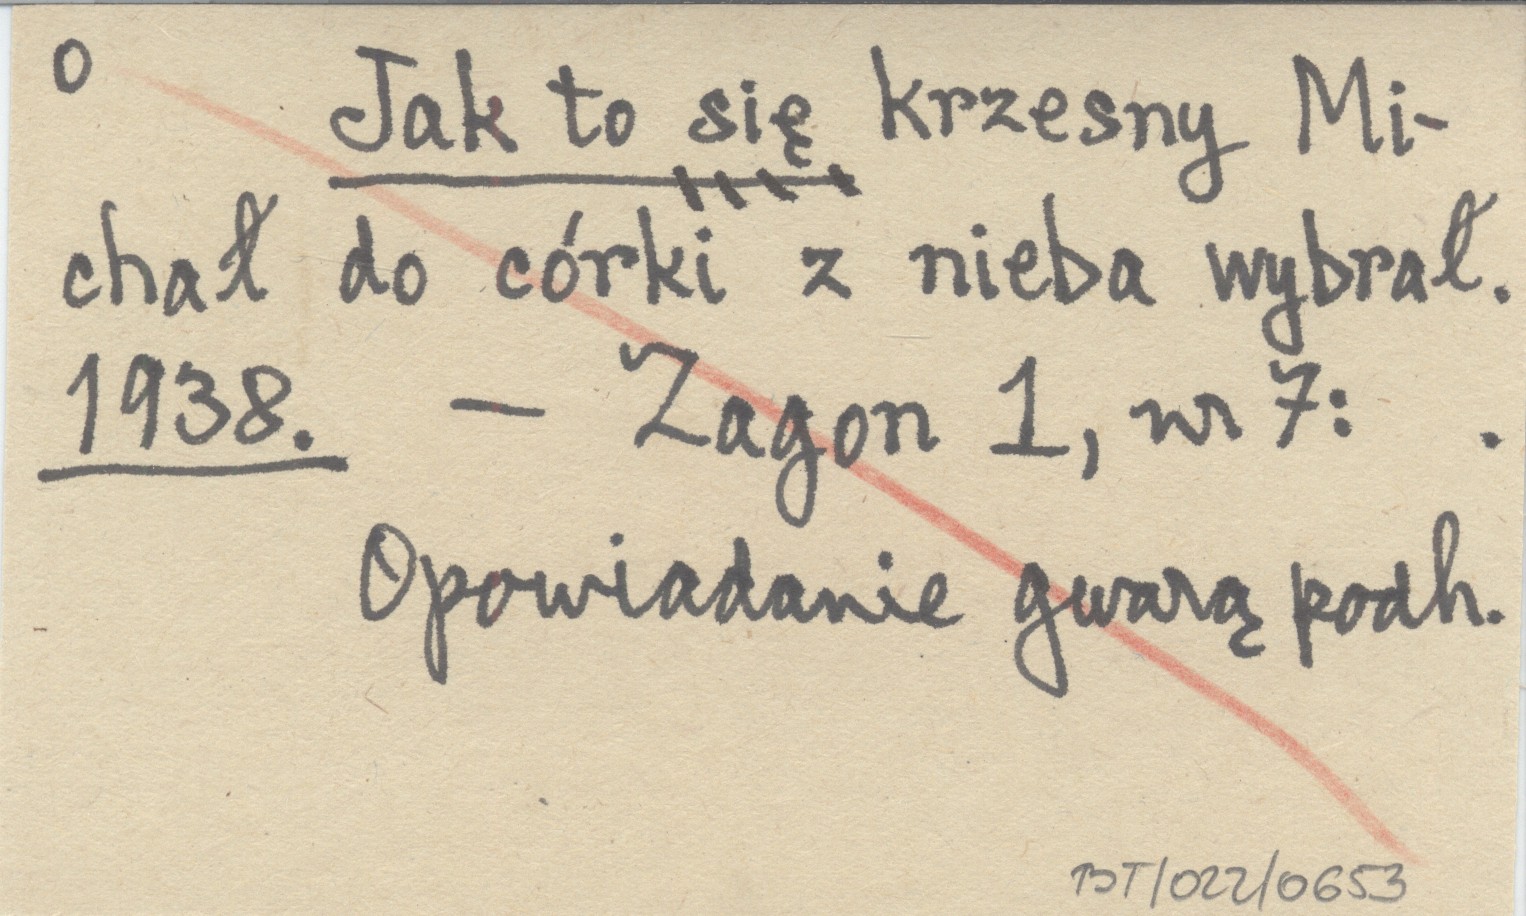 o Jak to się krzesny Mi-
chał do córki z nieba wybrał.
1938. — Zagon 1, nr 7: .
Opowiadanie gwarą podh.
BT/022/0653